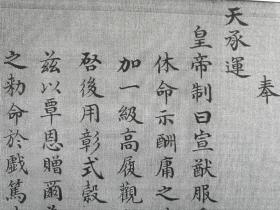 奉
天承運
皇帝制曰宣猷服
休命示酬庸之
加一級高履觀
啓後用彰式穀
茲以覃恩贈爾
之勅命於戲篤